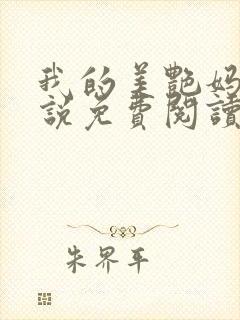 我的美艷妈
說免費閱讀
朱界平